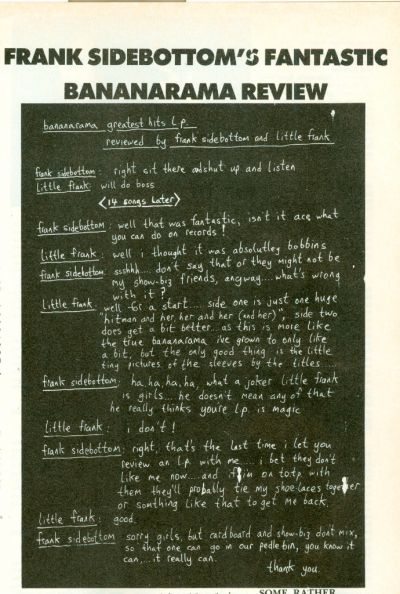 FRANK SIDEBOTTOM'S FANTASTIC
BANANARAMA REVIEW
bananarama greatest hits L.P.
reviewed by frank sidebottom and little frank
frank sidebottom: right sit there and shut up and listen
little frank: will do boss
<14 songs later>
frank sidebottom: well that was fantastic, isn't it ace what
you can do on records!
little frank: well i thought it was absolutley bobbins
frank sidebottom: ssshhh.... don't say that or they might not be
my show-biz friends, anyway... what's wrong
with it?
little frank: well for a start.... side one is just one huge
"hitman and her, her and her (and her)", side two
does get a bit better... as this is more like
the true bananarama i've grown to only like
a bit, but the only good thing is the little
tiny pictures of the sleeves by the titles.....
frank sidebottom: ha, ha, ha, ha, what a joker little frank
is girls... he doesn't mean any of that
he really thinks you're l.p. is magic
little frank: i don't!
frank sidebottom: right, that's the last time i let you
review an l.p. with me.... i bet they don't
like me now.... and if i'm on totp with
them they'll probably tie my shoe-laces together
or somthing like that to get me back.
little frank: good.
frank sidebottom sorry girls, but cardboard and show-biz dont mix,
so that one can go in our pedle bin, you know it
can,... it really can.
thank you.
SOME RATHER